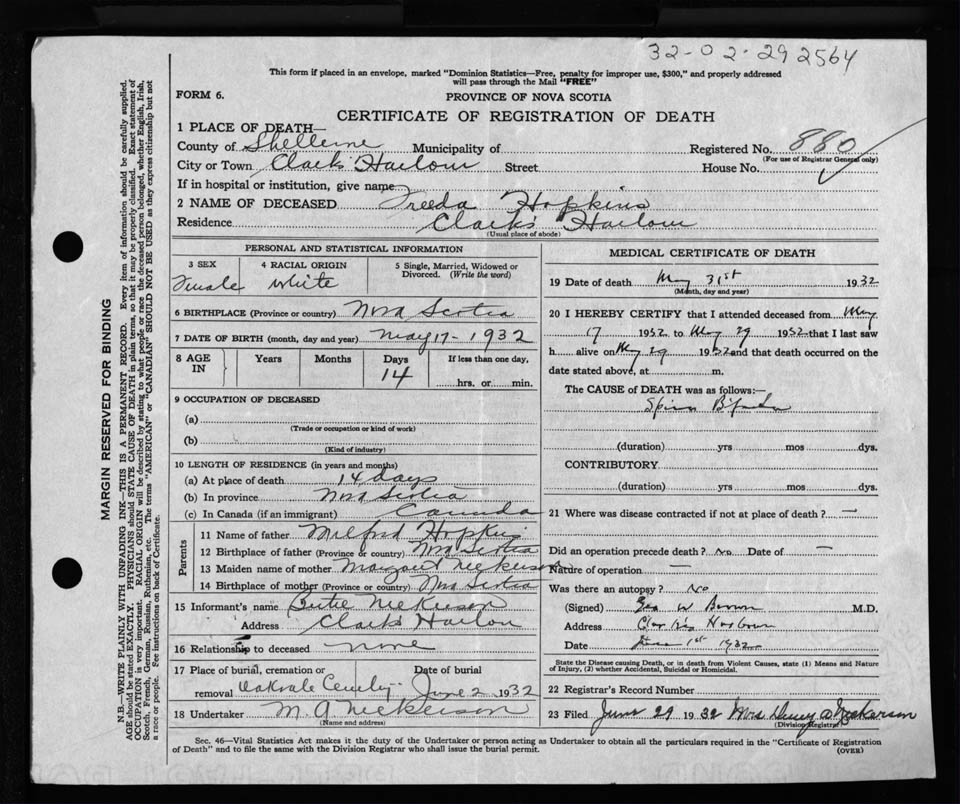 32-02-292564
This form if placed in an envelope, marked "Dominion Statistics—Free, penalty for improper use, $300," and properly addressed
will pass through the Mail "FREE"
FORM 6.
PROVINCE OF NOVA SCOTIA
CERTIFICATE OF REGISTRATION OF DEATH
1 PLACE OF DEATH—
County of Shelburne Municipality of Registered No. 880
(For use of Registrar General only)
City or Town Clark's Harbour Street House No.
If in hospital or institution, give name
2 NAME OF DECEASED Freeda Hopkins
Residence Clark's Harbour
(Usual place of abode)
PERSONAL AND STATISTICAL INFORMATION
3 SEX 4 RACIAL ORIGIN 5 Single, Married, Widowed or Divorced. (Write the word)
Female White
6 BIRTHPLACE (Province or country) Nova Scotia
7 DATE OF BIRTH (month, day and year) May 17-1932
8 AGE IN Years Months Days If less than one day,
14 hrs. or min.
9 OCCUPATION OF DECEASED
(a)
(Trade or occupation or kind of work)
(b)
(Kind of industry)
10 LENGTH OF RESIDENCE (in years and months)
(a) At place of death 14 days
(b) In province Nova Scotia
(c) In Canada (if an immigrant) Canada
Parents
11 Name of father Milford Hopkins
12 Birthplace of father (Province or country) Nova Scotia
13 Maiden name of mother Margaret Nickerson
14 Birthplace of mother (Province or country) Nova Scotia
15 Informant's name Nickerson
Address Clark's Harbour
16 Relationship to deceased none
17 Place of burial, cremation or Date of burial
removal Oakvale Cemetery June 2 1932
18 Undertaker M. A. Nickerson
(Name and address)
MEDICAL CERTIFICATE OF DEATH
19 Date of death May 31st 1932
(Month, day and year)
20 I HEREBY CERTIFY that I attended deceased from May
17 1932 to May 29 1932 that I last saw
h alive on May 29 1932 and that death occurred on the
date stated above, at m.
The CAUSE of DEATH was as follows:—
Spina Bifida
(duration) yrs mos dys.
CONTRIBUTORY
(duration) yrs mos dys.
21 Where was disease contracted if not at place of death? —
Did an operation precede death? No Date of —
Nature of operation —
Was there an autopsy? No
(Signed) Geo W M.D.
Address Clarks Harbour
Date June 1st 1932
State the Disease causing Death, or in death from Violent Causes, state (1) Means and Nature
of Injury, (2) whether Accidental, Suicidal or Homicidal.
22 Registrar's Record Number
23 Filed June 29 1932 Mrs Nickerson
(Division Registrar)
Sec. 46—Vital Statistics Act makes it the duty of the Undertaker or person acting as Undertaker to obtain all the particulars required in the "Certificate of Registration
of Death" and to file the same with the Division Registrar who shall issue the burial permit.
(OVER)
MARGIN RESERVED FOR BINDING
N.B.—WRITE PLAINLY WITH UNFADING INK—THIS IS A PERMANENT RECORD. Every item of information should be carefully supplied.
AGE should be stated EXACTLY. PHYSICIANS should STATE CAUSE OF DEATH in plain terms, so that it may be properly classified. Exact statement of
OCCUPATION is very important. RACIAL ORIGIN will be described by stating to what people or race the deceased person belonged, whether English, Irish,
Scotch, French, German, Russian, Ruthenian, etc. The terms "AMERICAN" or "CANADIAN" SHOULD NOT BE USED as they express citizenship but not
a race or people. See instructions on back of Certificate.